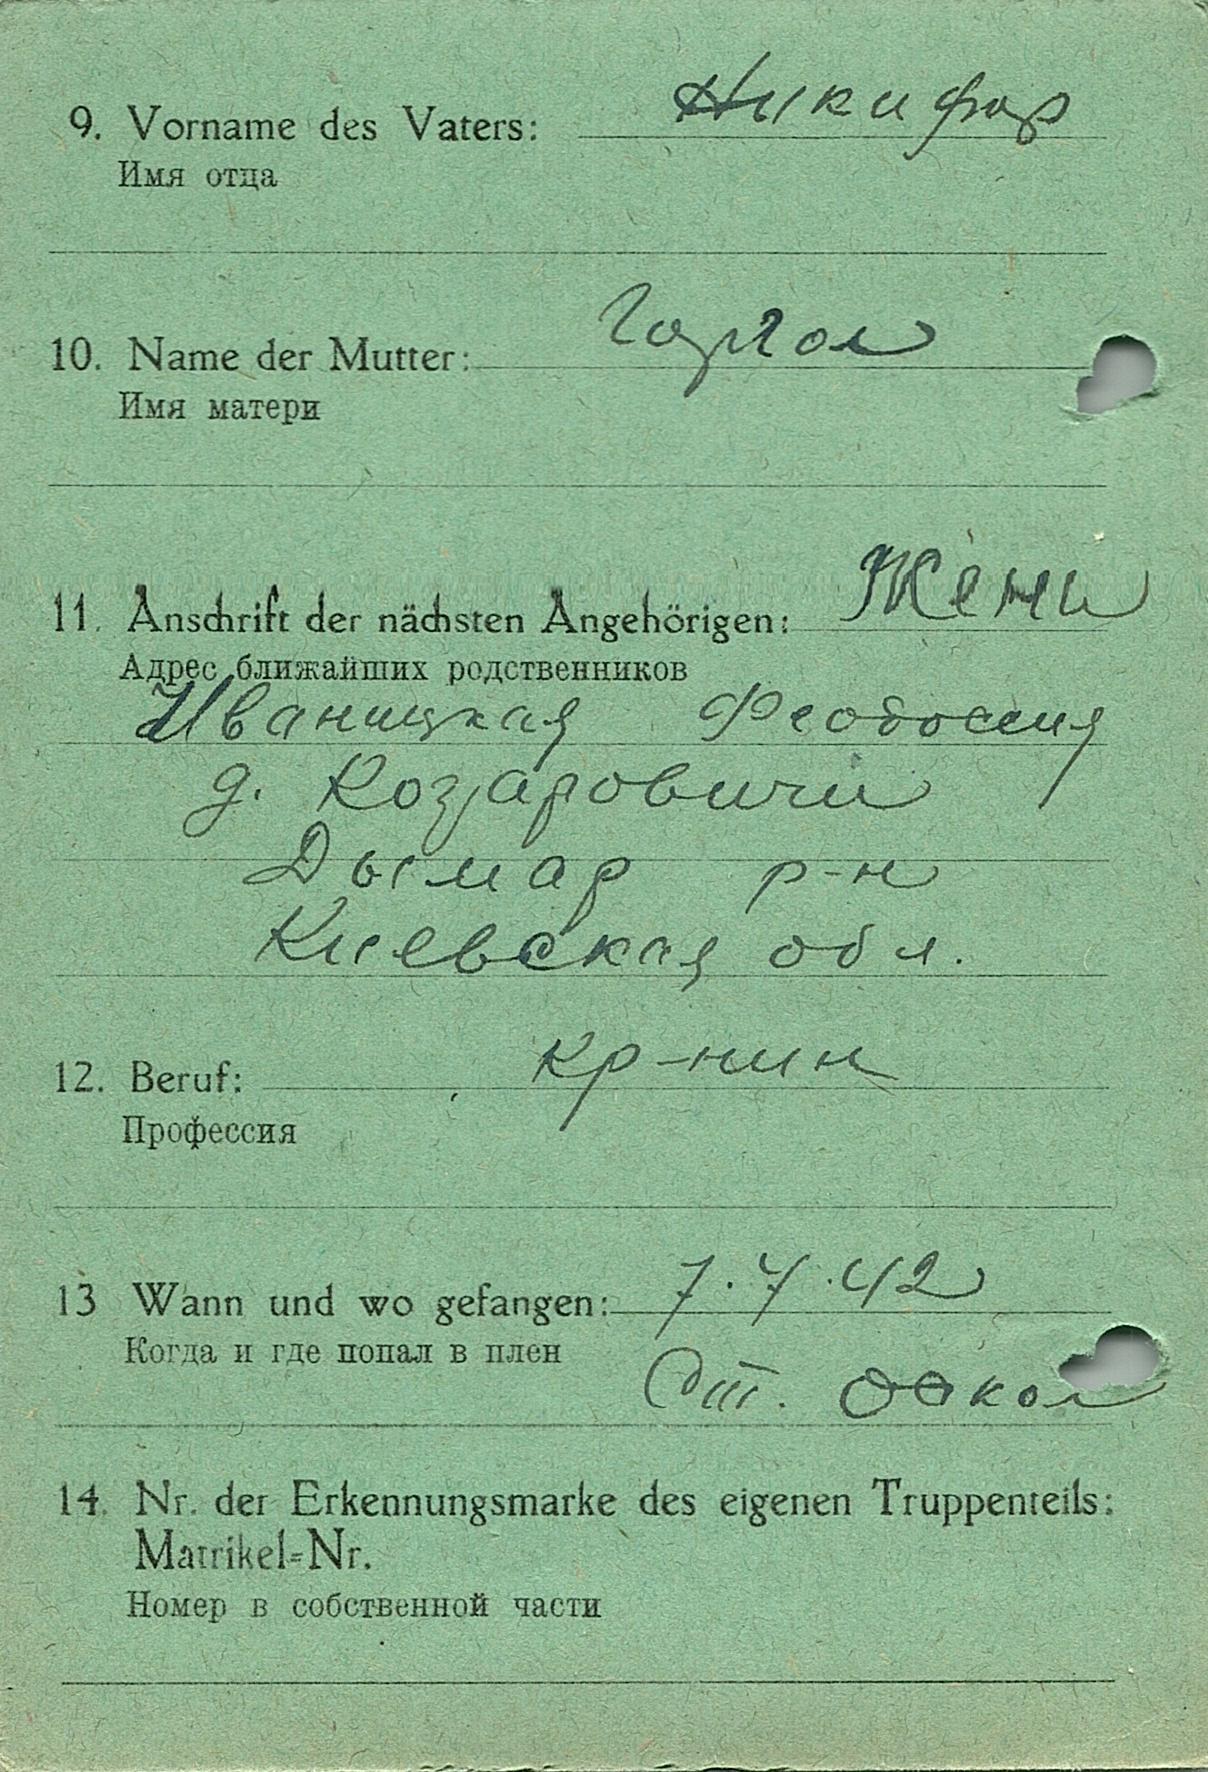 9. Vorname des Vaters: Никифор
Имя отца
10. Name der Mutter:
Имя матери
11. Anschrift der nächsten Angehörigen: Жены
Адрес ближайших родственников
Иваницкая Феодосия
д. Козаровичи
Дымар р-н
Киевская обл.
12. Beruf: кр-нин
Профессия
13 Wann und wo gefangen: 7.7.42
Когда и где попал в плен
Ст. Оскол
14. Nr. der Erkennungsmarke des eigenen Truppenteils:
Matrikel=Nr.
Номер в собственной части